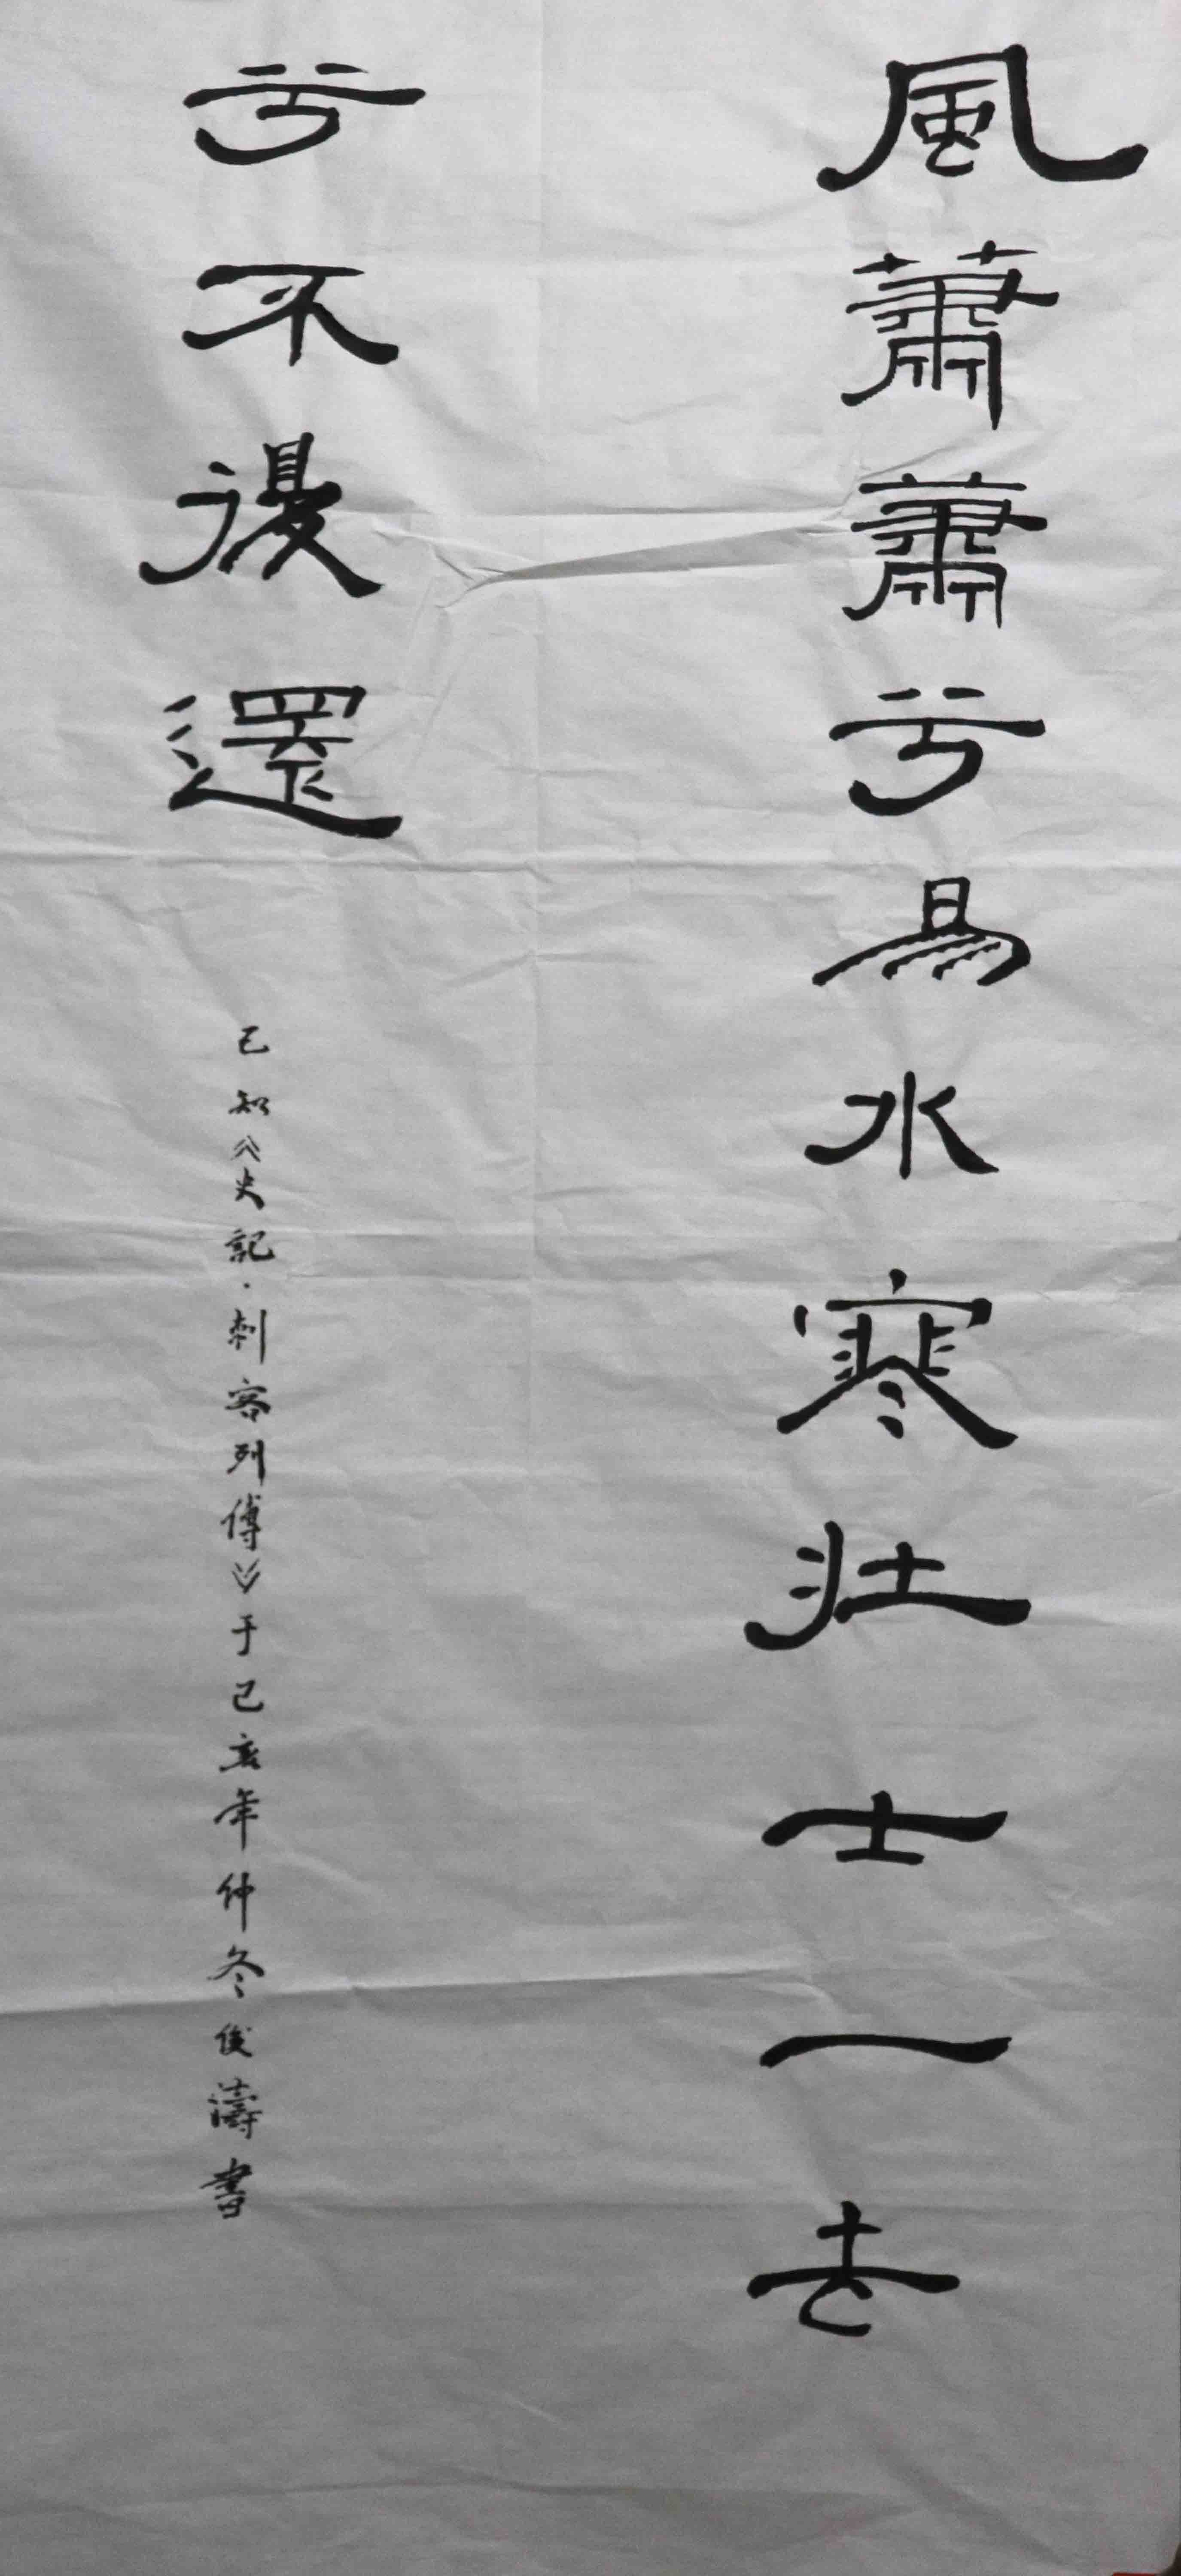 風蕭蕭兮易水寒壯士一去
兮不復還
已知《史記·刺客列傳》于己亥年仲冬俊濤書